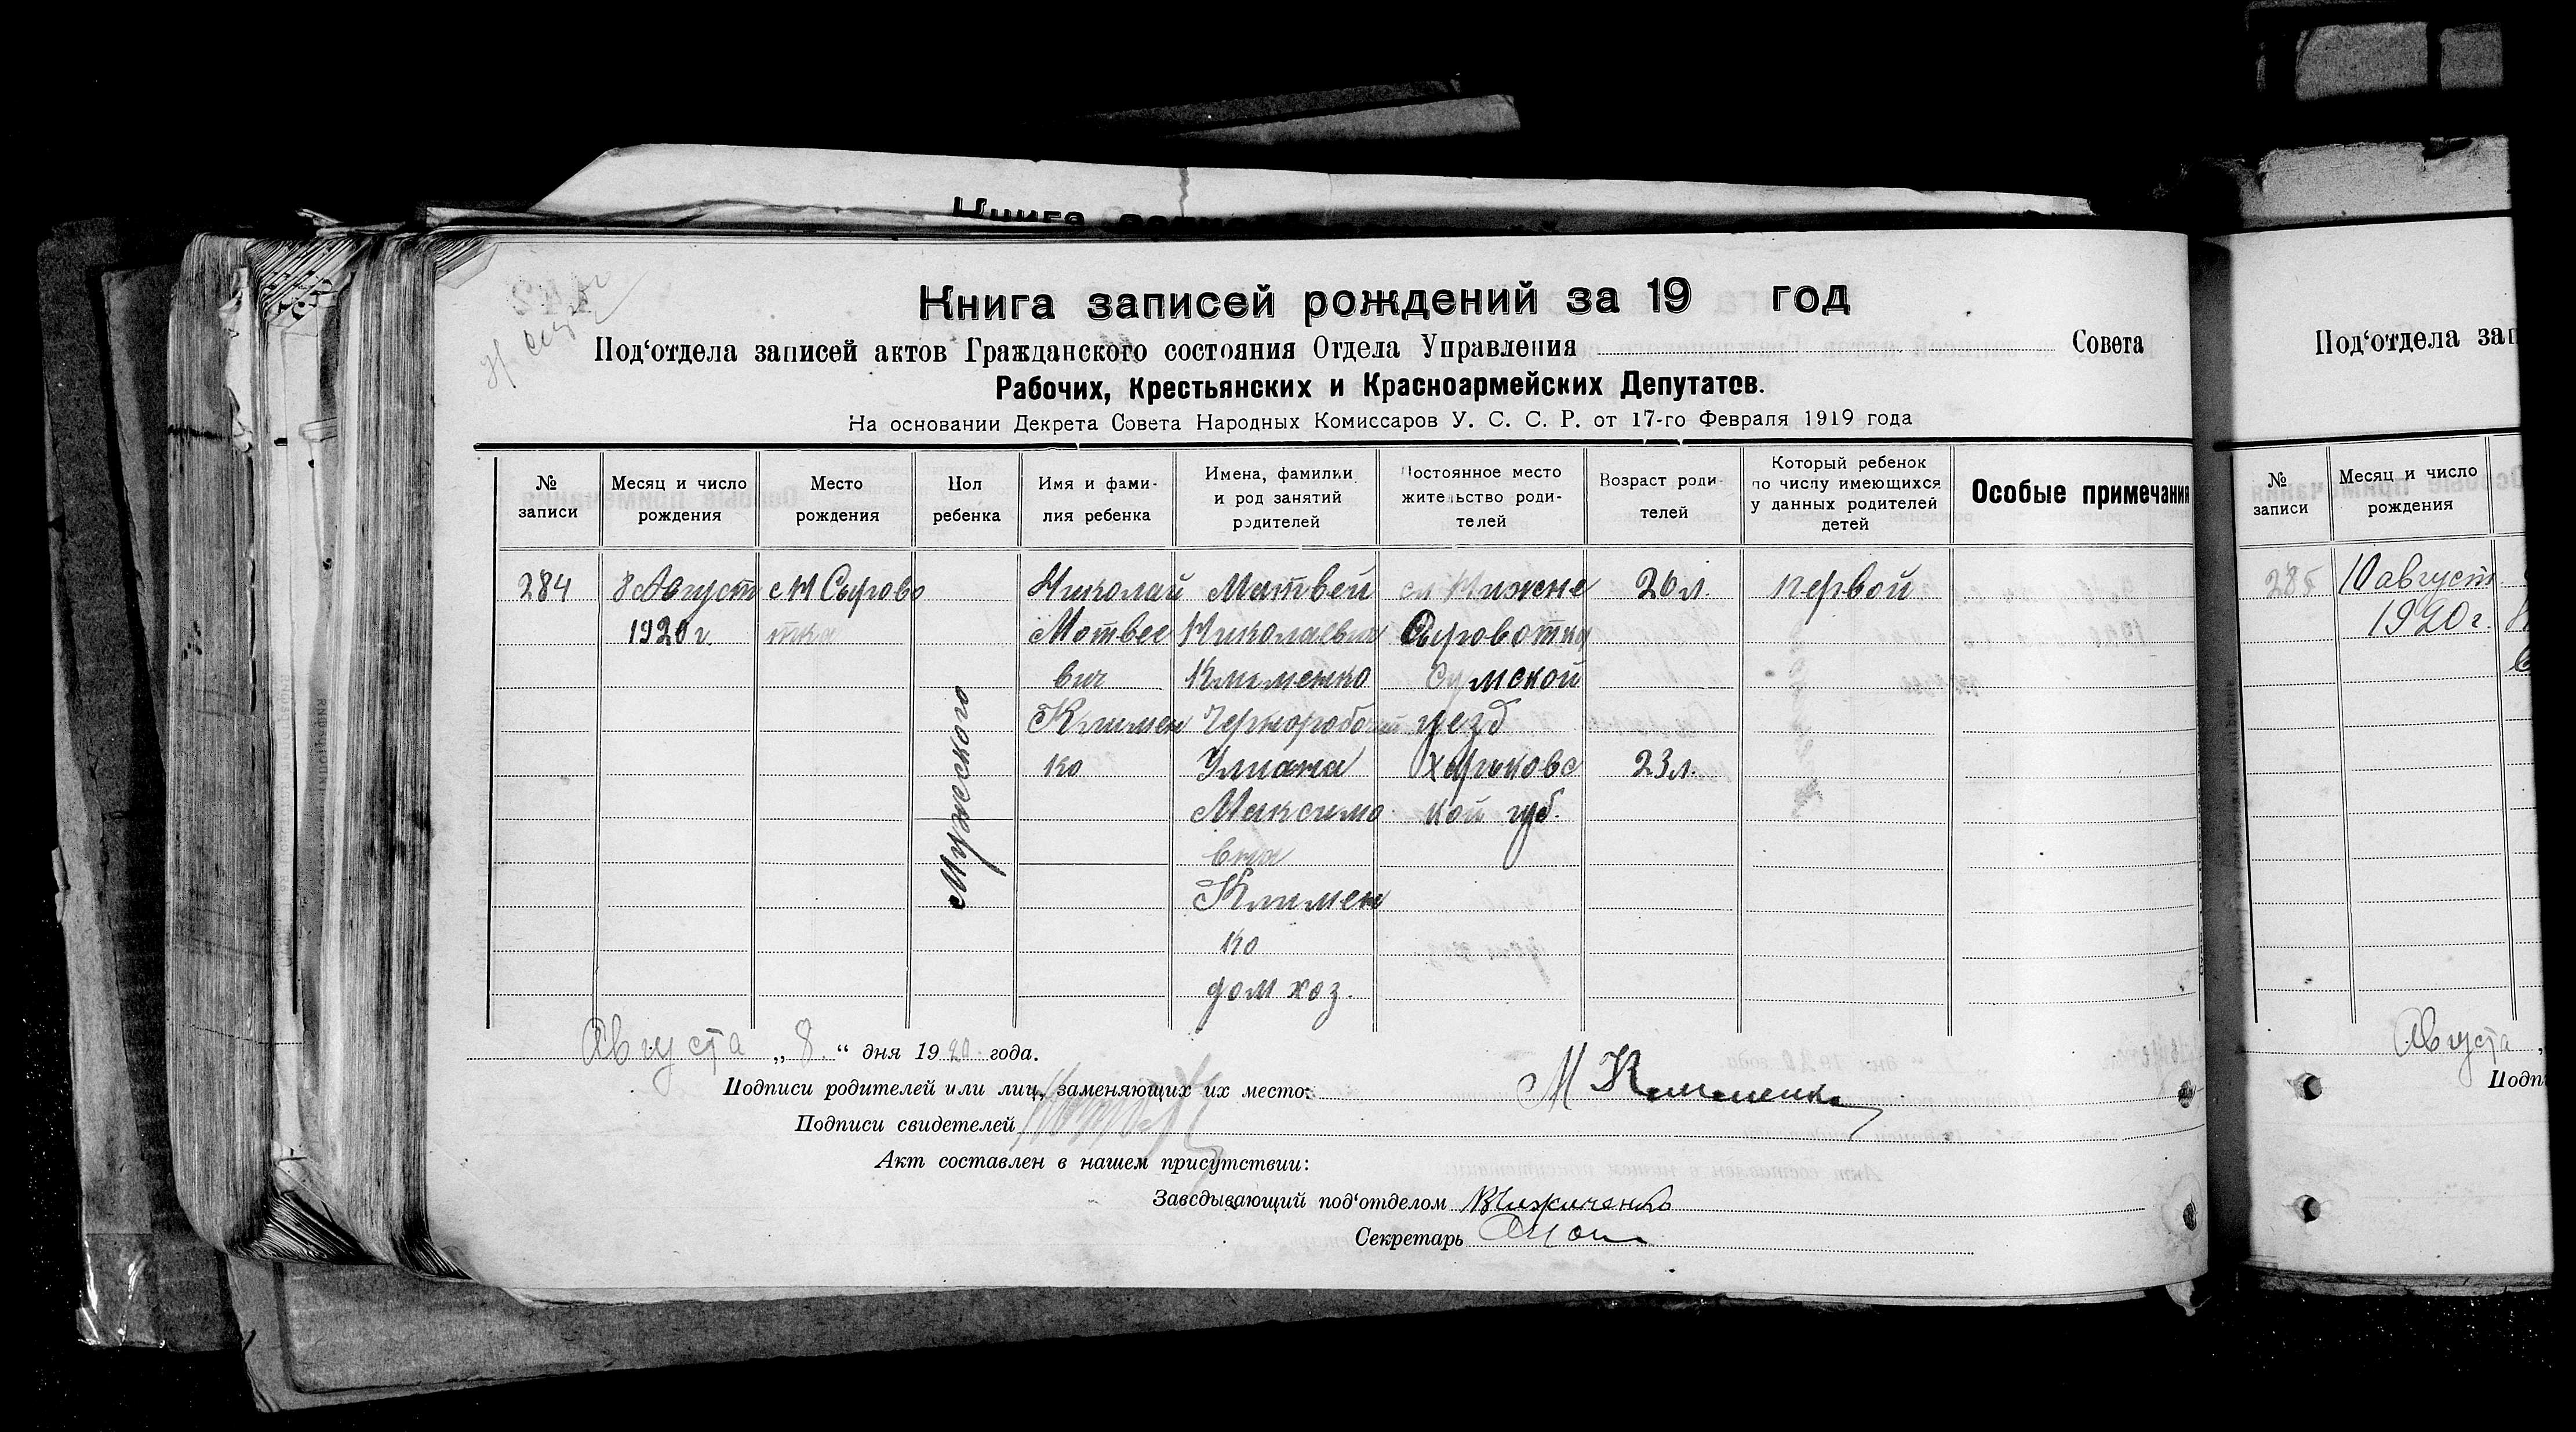 Книга записей рождений за 19 год
Под‘отдела записей актов Гражданского состояния Отдела Управления Совета
Рабочих, Крестьянских и Красноармейских Депутатов.
На основании Декрета Совета Народных Комиссаров У. С. С. Р. от 17-го Февраля 1919 года
№ записи
Месяц и число рождения
Место рождения
Пол ребенка
Имя и фами-
лия ребенка
Имена, фамилии
и род занятий
родителей
Постоянное место
жительство роди-
телей
Возраст роди-
телей
Который ребенок
по числу имеющихся
у данных родителей
детей
Особые примечания
284
8 Август
1920 г.
с Н Сырово
тка
Мужеского
Николай
Матвее
вич
Климен
ко
Матвей
Николаевич
Клименко
Чернорабочий
Улиана
Максимо
вна
Климен
ко
дом хоз.
сл Нижне
Сыровотка
Сумской
уезд
Харьковс
кой губ.
20 л.
23 л.
первой
Августа „ 8 “ дня 1920 года.
Подписи родителей или лиц, заменяющих их место: М Клименко
Подписи свидетелей
Акт составлен в нашем присутствии:
Заведывающий под‘отделом
Секретарь
Книга
Под‘отдела зап
№ записи
Месяц и число
рождения
285
10 август
1920 г.
Августа
Подп